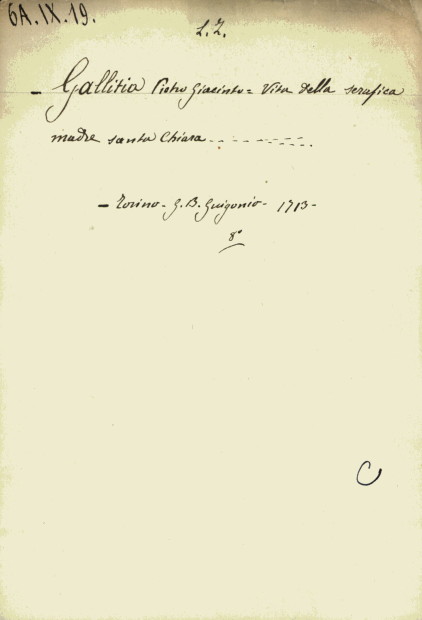 6A.IX.19.
L.Z.
- Gallitia Pietro Giacinto = Vita della serafica
madre santa Chiara
- Torino - G.B. Guigonio - 1713 -
8°
C